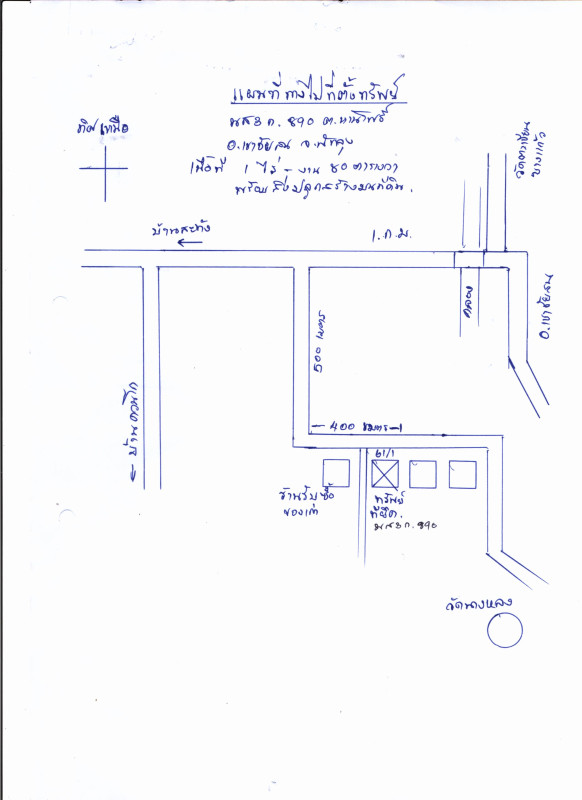 แผนที่ทางไปที่ตั้งทรัพย์
นส3ก. ๘๑๐ ต.หานโพธิ์
อ.เขาชัยสน จ.พัทลุง
เนื้อที่ 1 ไร่ - งาน ๖๐ ตารางวา
พร้อมสิ่งปลูกสร้างบนที่ดิน.
ทิศเหนือ
วัดตะเขียน
บางแก้ว
บ้านสะทัง
1.ก.ม.
คลอง
อ.เขาชัยสน
500 เมตร
400 เมตร
บ้านควนโก
61/1
ร้านรับซื้อ
ของเก่า
ทรัพย์
ที่ยึด.
นส3ก. ๘๑๐
วัดนางหลง